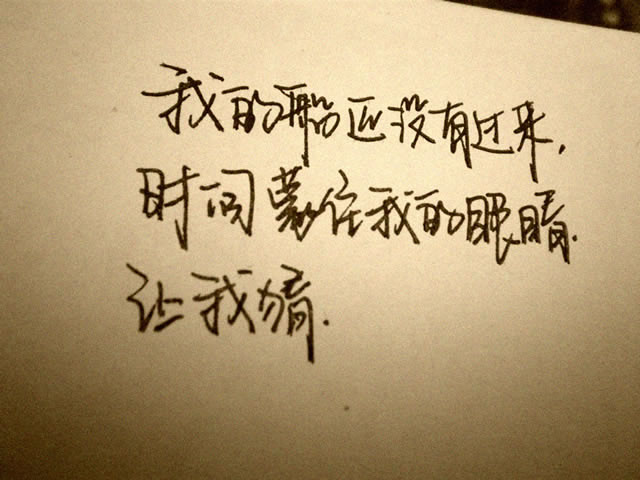 我的船还没有过来,
时间蒙住我的眼睛.
让我猜.